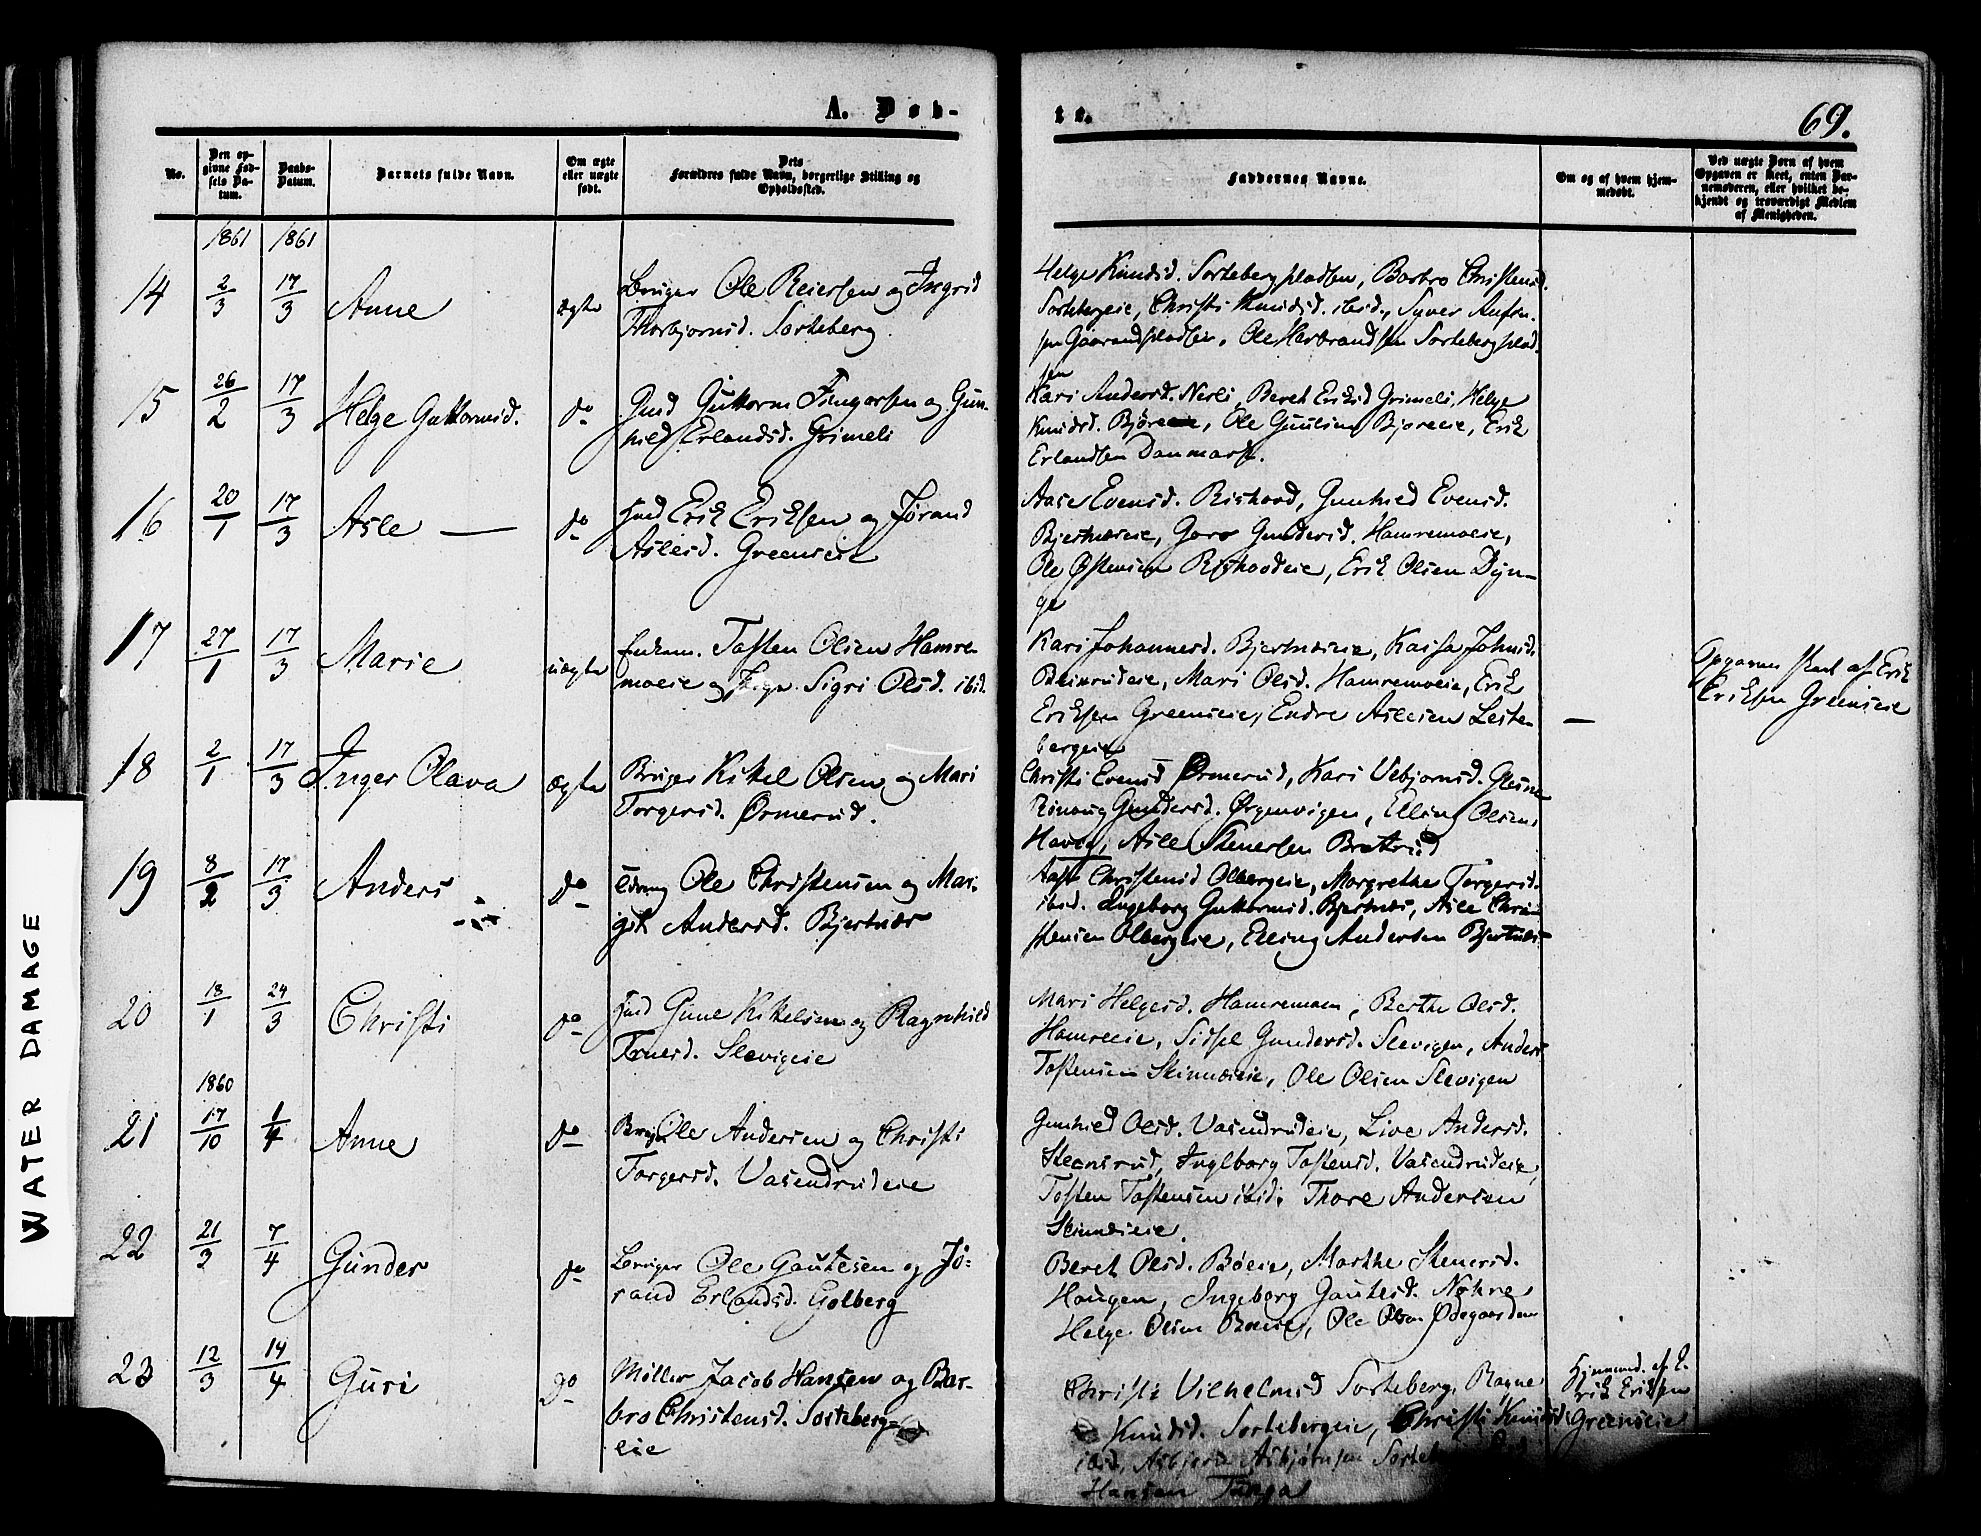 A. Døb-
te.
69.
No.
Den op-
givne Fød-
sels Da-
tum.
Daabs-
Datum.
Barnets fulde Navn.
Om ægte
eller uægte
født.
Dets
Forældres fulde Navn, borgerlige Stilling og
Opholdssted.
Faddernes Navne.
Om og af hvem hjem-
medøbt.
Ved uægte Børn af hvem
Opgaven er skeet, enten Bar-
nemoderen, eller hvilket be-
kjendt og troværdigt Medlem
af Menigheden.
1861 1861
14 2/3 17/3 Anne ægte Bruger Ole Reiersen og Ingrid
Thorbjørnsd. Sorteberg.
Helge Knudsd. Sortebergpladsen, Barbro Christensd.
Sortebergeie, Christi Knudsd. ibid., Syver
sen Gaarandpladsen, Ole Herbrandsen Sortebergplad-
sen
15 26/2 17/3 Helge Guttormsd. do Guttorm Fingarsen og Gun-
hild Erlandsd. Grimeli
Kari Andersd. Nerli, Beret Eriksd Grimeli, Helge
Knudsd. Bjøreeie, Ole Bjøreeie, Erik
Erlandsen Danmark.
16 20/1 17/3 Asle — do Erik Eriksen og Jørand
Aslesd. Greenseie
Aase Evensd. Gunhild Evensd.
Bjertnæseie, Goro Gundersd. Hamremoeie,
Ole Østensen Erik Olsen Dyn-
ge
17 27/1 17/3 Marie uægte Enkem. Tosten Olsen Hamre-
moeie og Sigri Olsd. ibid.
Kari Johannesd. Bjertnæseie, Kaisa Johnsd.
Beinrudeie, Mari Olsd. Hamremoeie, Erik
Eriksen Greenseie, Endre Aslesen Leste-
bergeie
—
Opgaven skeet af Erik
Eriksen Greenseie
18 2/1 17/3 Inger Olava ægte Bruger Kittel Olsen og Mari
Torgersd. Ørmerud.
Christi Evensd Ørmerud, Kari Vebjørnsd. Glesne
Rönnaug Gundersd. Ørgenvigen, Elling Olsen
Asle Stenersen Bratrud
19 8/2 17/3 Anders do Ole Christensen og Mar-
git Andersd. Bjertnæs
Christensd Olbergeie, Margrethe Torgersd.
ibid. Ingeborg Guttormsd. Bjertnæs, Asle Chri-
stensen Olbergeie, Elling Andersen Bjertnæs
20 18/1 24/3 Christi do Gune Kittelsen og Ragnhild
Truesd. Slevigeie
Mari Helgesd. Hamremoen, Berthe Olsd.
Hamreeie, Sidsel Gundersd. Slevigen, Anders
Tostensen Skinnæseie, Ole Olsen Slevigen
1860
21 17/10 1/4 Anne do Ole Andersen og Christi
Torgersd. Vasendrudeie
Gunhild Olsd. Vasendrudeie, Live Andersd.
Steensrud, Ingeborg Tostensd. Vasendrudeie,
Tosten Tostensen ibid. Thore Andersen
Skinnæseie.
22 21/3 7/4 Gunder do Bruger Ole Gautesen og Jø-
rand Erlandsd. Golberg
Beret Olsd. Böeie, Marthe Stenersd.
Haugen, Ingeborg Gautesd. Nöhre
Helge Olsen Böeie, Ole Olsen Ødegaarden
23 12/3 14/4 Guri do Møller Jacob Hansen og Bar-
bro Christensd. Sorteberg-
eie
Christi Vilhelmsd Sorteberg, Ragne
Knudsd. Sortebergeie, Christi Knudsd
ibid, Asbjørnsen
Hansen
Hjemmed. af E-
rik Eriksen
Greenseie
WATER DAMAGE